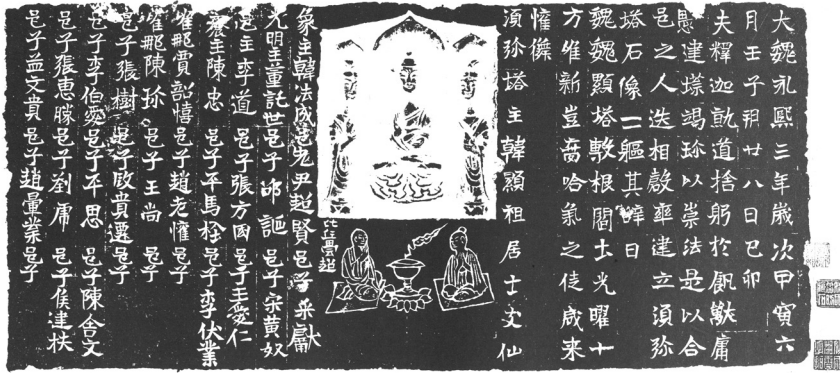 大魏永熙三年歲次甲寅六
月壬子朔廿八日己卯
夫釋迦訊道捨躬於飢獸庸
愚建塔竭珎以崇法是以合
邑之人迭相勸率建立須弥
塔石像二軀其辞曰
魏魏顯塔敷根閻出光曜十
方唯新豈啻哈氣之徒咸来
懽傑
須弥塔主韓顯祖居士史仙
比丘曇超
象主韓法成邑老尹超賢邑子樂獻
光明主董託世邑子邱謳邑子宗黄奴
邑主李道邑子張方因邑子王愛仁
齋主陳忠邑子平馬栓邑子李伏業
唯那賈韶憘邑子趙老懽邑子
唯那陳珎邑子王尚邑子
邑子張樹邑子殷貴邑子
邑子李伯愛邑子平思邑子陳舍文
邑子張惠勝邑子刘席邑子侯達扶
邑子孟文貴邑子趙曇業邑子